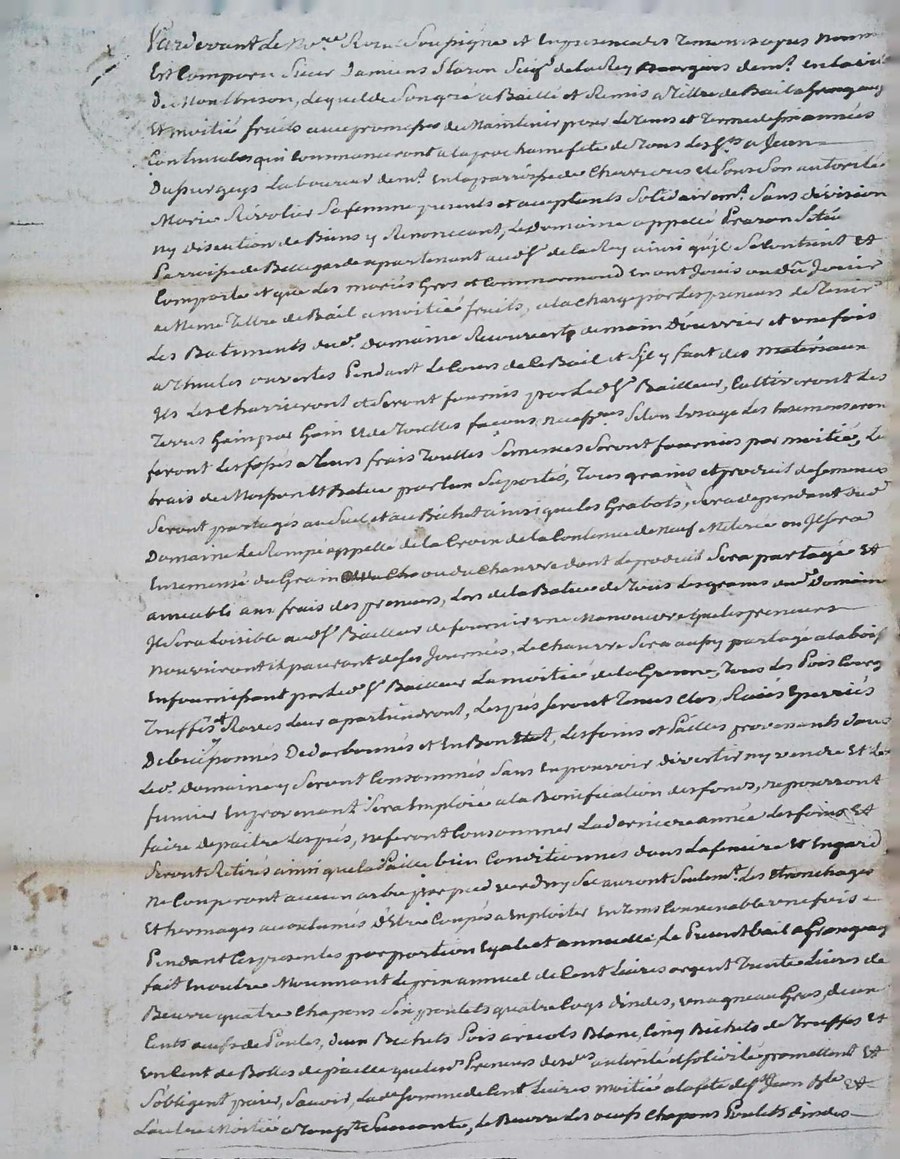 Pardevant Le No.re Royal Soussigné et En presence des Temoins apres nommés
Est Comparu Sieur Damiens Staron Sieg.r de la Rey Bourgeois dem.t en la ville
De Montbrison, Lequel de Son gré a Baillé et Remis a Tiltre de Bail a Grangeag
Et moitié fruits avec promesse de Maintenir pour Le tems et Terme de six années
Continuelles qui Commanceront a la prochaine fete de Tous Les S.ts a Jean
Dufurgeys Laboureur dem.t En la parroisse de Chevrieres et de Sous Son autorité
Marie Révolier Sa femme presents et acceptants Solidairem.t Sans division
ny discution de Biens y Renonceant, Le Domaine appellé Grazon Scitué
Parroisse de Bellegarde apartenant aud.S.r de la Rey ainsi quil Se Contient Et
Comporte et que Les mariés Gros et Commarmond En ont Jouis ou dû Jouir
a Meme Tiltre de Bail a moitié fruits, a la Charge par Les preneurs de Tenir
Les Batiments dud. Domaine Recouverts de main Douvrier et une fois
a Thuiles ouvertes Pendant Le Cours de Ce Bail et Sil y faut des matériaux
Ils Les Charrieront et Seront fournis par Led. S.r Bailleur, Cultiveront Les
Terres Gain par Gain Et de Touttes façons necess.res Selon Lusage Les
feront Les fossés a Leurs frais Touttes Semences Seront fournies par moitié, Le
frais de Moisson Et Batue par eux Suportés, Tous grains et produit de Semences
Seront partagés au Sol et au Bichet ainsi que Les Grabots, Sera dependant dud
Domaine Le Rompé appellé de la Croix de la Contenue de Neuf Meterée ou Il Sera
Ensemensé du Grain ou du Chanvre dont Le produit Sera partagé Et
ameublé aux frais des preneurs, Lors de la Batue de Tous Les grains dud. Domaine
Il Sera Loisible aud. S.r Bailleur de fournir une Manoeuvre que Les preneurs
Nourriront Et payeront de Ses Journées, Le Chanvre Sera aussy partagé a la
En fournissant par Led. S.r Bailleur La moitié de la Grenne, Tous Les Pois
Truffes et Raves Leur apartiendront, Les prés Seront Tenus Clos, Razés Eperriés
Debuissonnés Dedarbonnés et En Bon Etat, Les foins et Pailles provenants dans
Led. domaine y Seront Consommés Sans En pouvoir divertir ny vendre Et Le
fumier En provenant Sera Emploié a la Bonification des fonds, ne pourront
faire depaitre Les prés, ne feront Consommer La derniere année Les foins Et
Seront Retirés ainsi que La Paille bien Conditionnés dans La feniere Et Engard
Ne Couperont aucun arbre par pied verd ny Sec auront Seulem.t Les Etronchages
Et hermages accoutumés D'etre Coupés a Emploiter En tems Convenable une fois
Pendant Ces presentes par portion Egale et annuelle, Le Present bail a Grangeag
fait En outre Moyennant Le prix annuel de Cent Livres argent Trente Livres de
Beurre quatre Chapons Six poulets quatre Coqs dindes, un agneau Gras, deux
Cents oeufs de Poules, deux Bichets Pois aricots Blanc, Cinq Bichets de Truffes Et
un Cent de Bottes de paille que Les d.s Preneurs des d.es autorité et solidité promettent Et
S'obligent payer, Savoir, La de somme de Cent Livres moitié a la fete de S.t Jean B.te Et
L'autre Moitié a Suivante, Le Beurre Les oeufs Chapons Poulets dindes